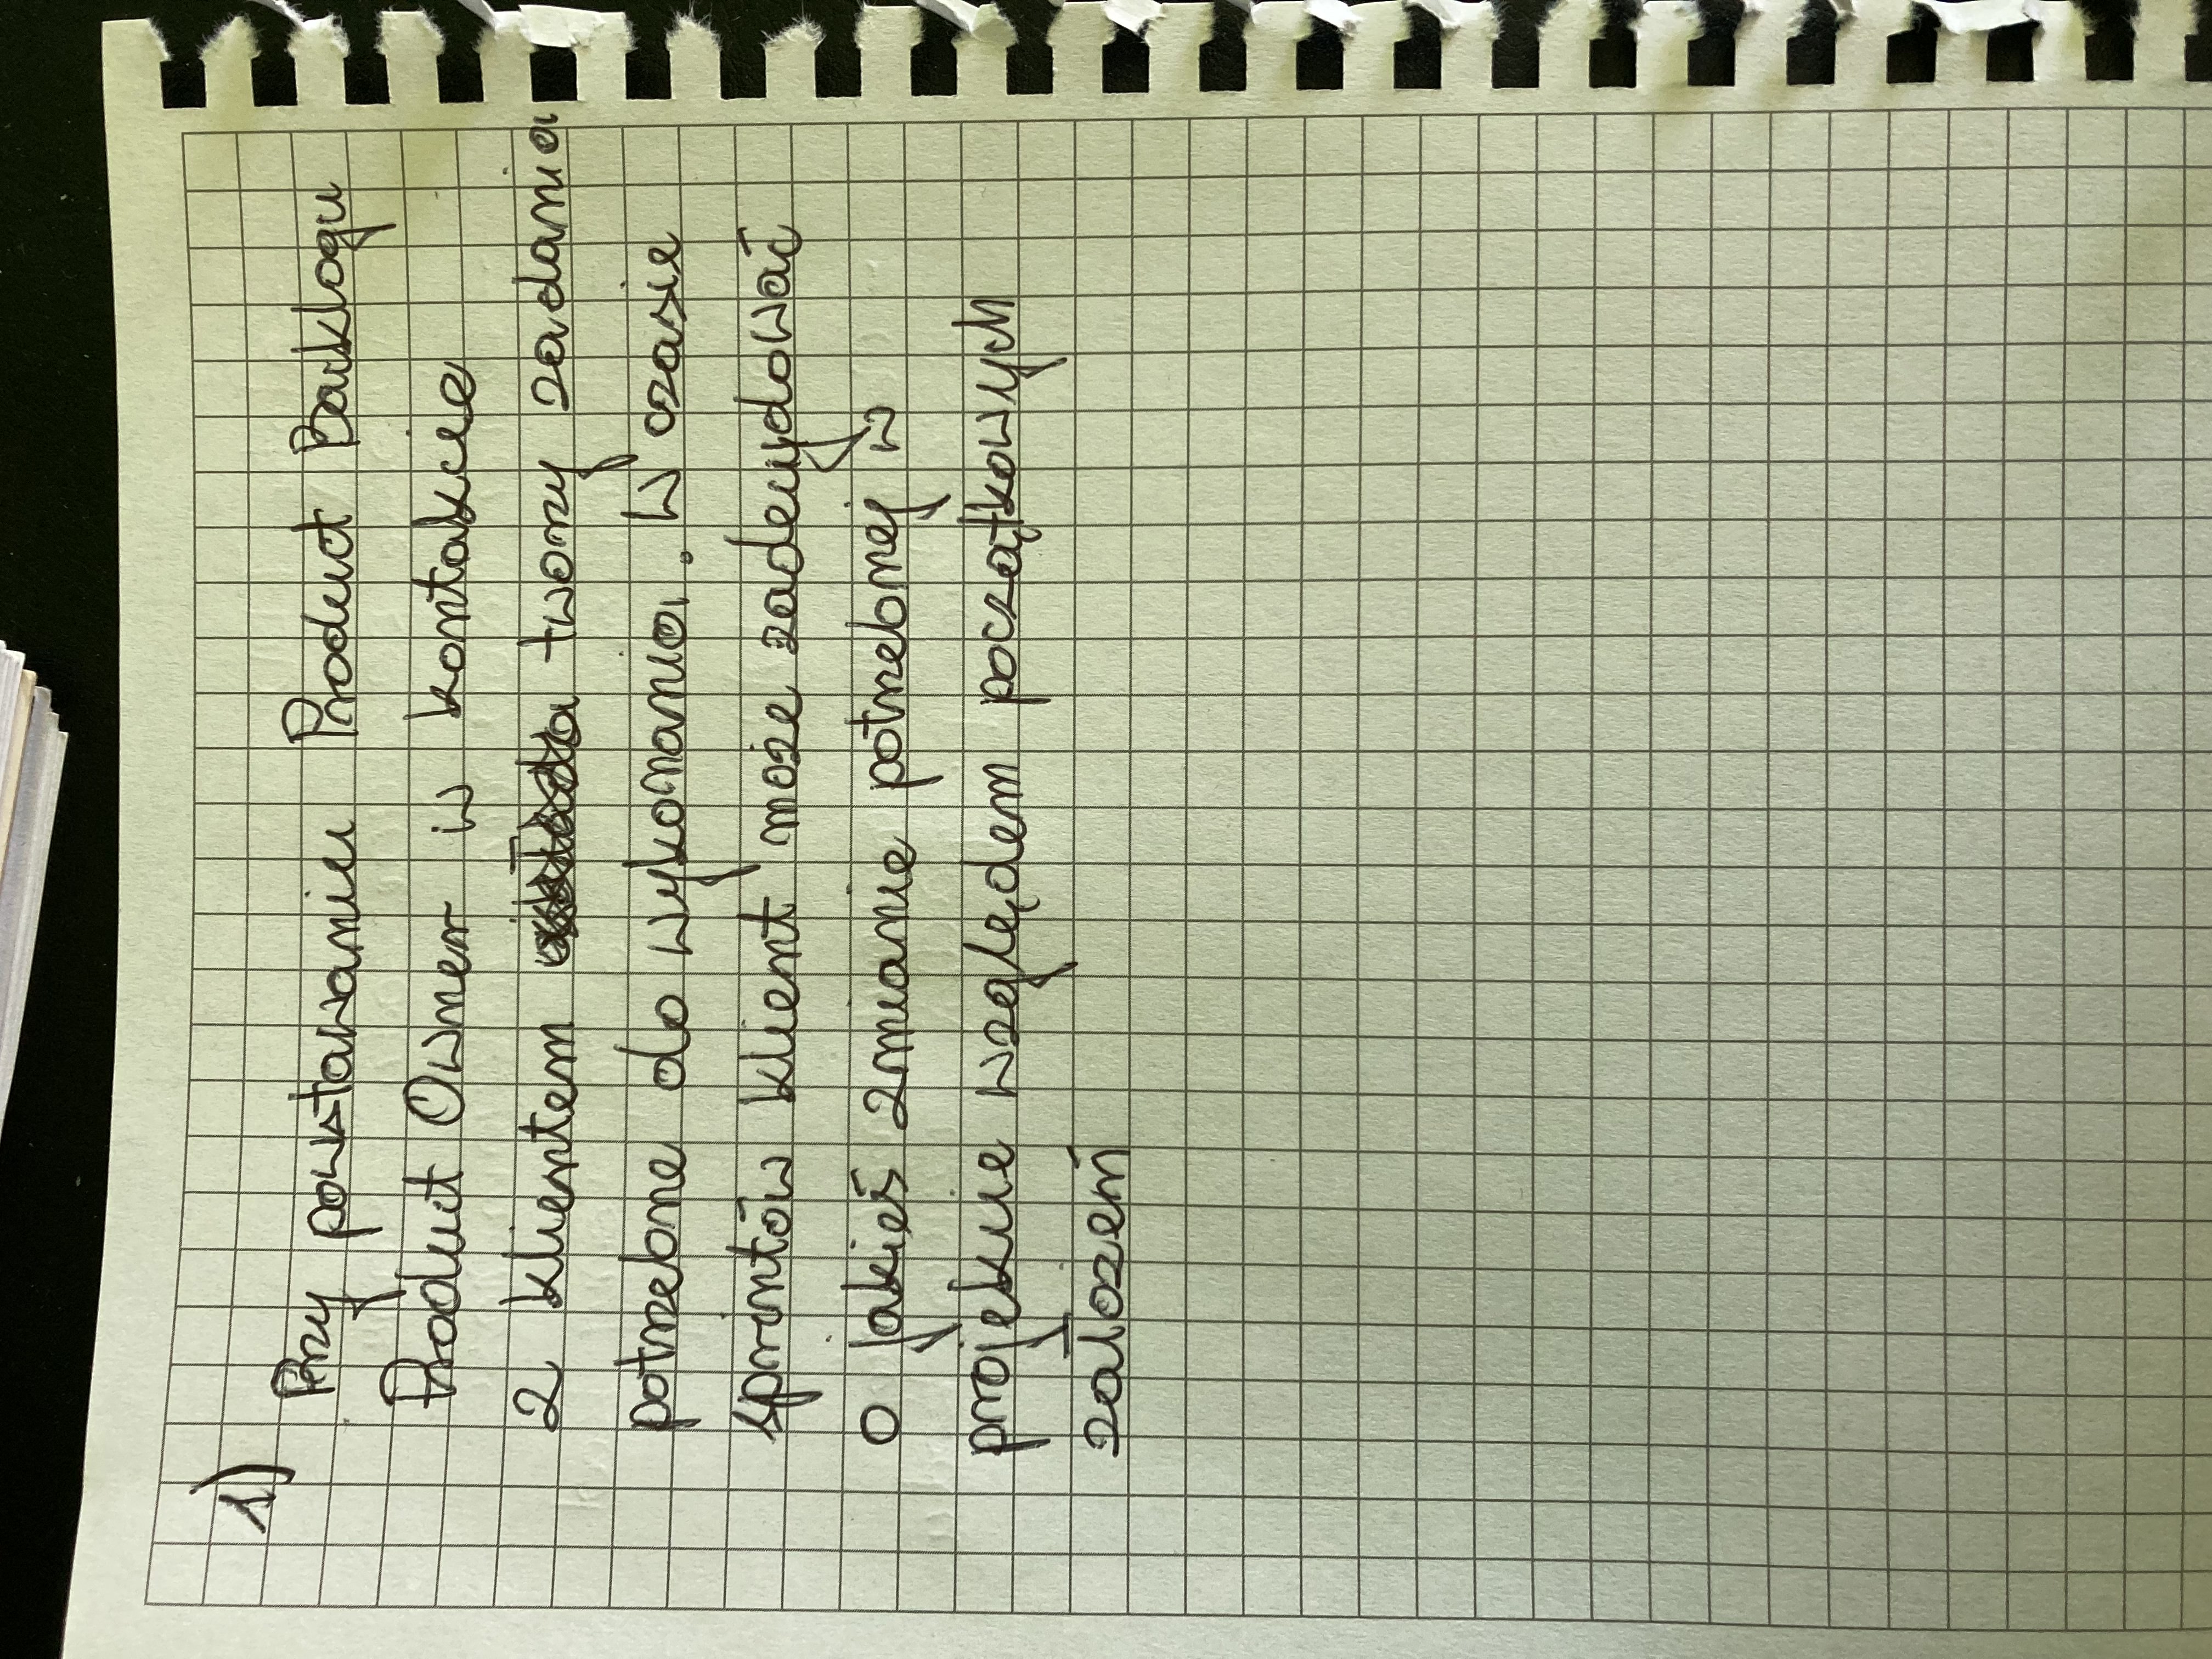 1)
Przy powstawaniu Product Backlogu
Product Owner w kontakcie
z klientem tworzy zadania
potrzebne do wykonania. W czasie
sprintów klient może zadecydować
o jakieś zmianie potrzebnej w
projekcie względem początkowych
założeń